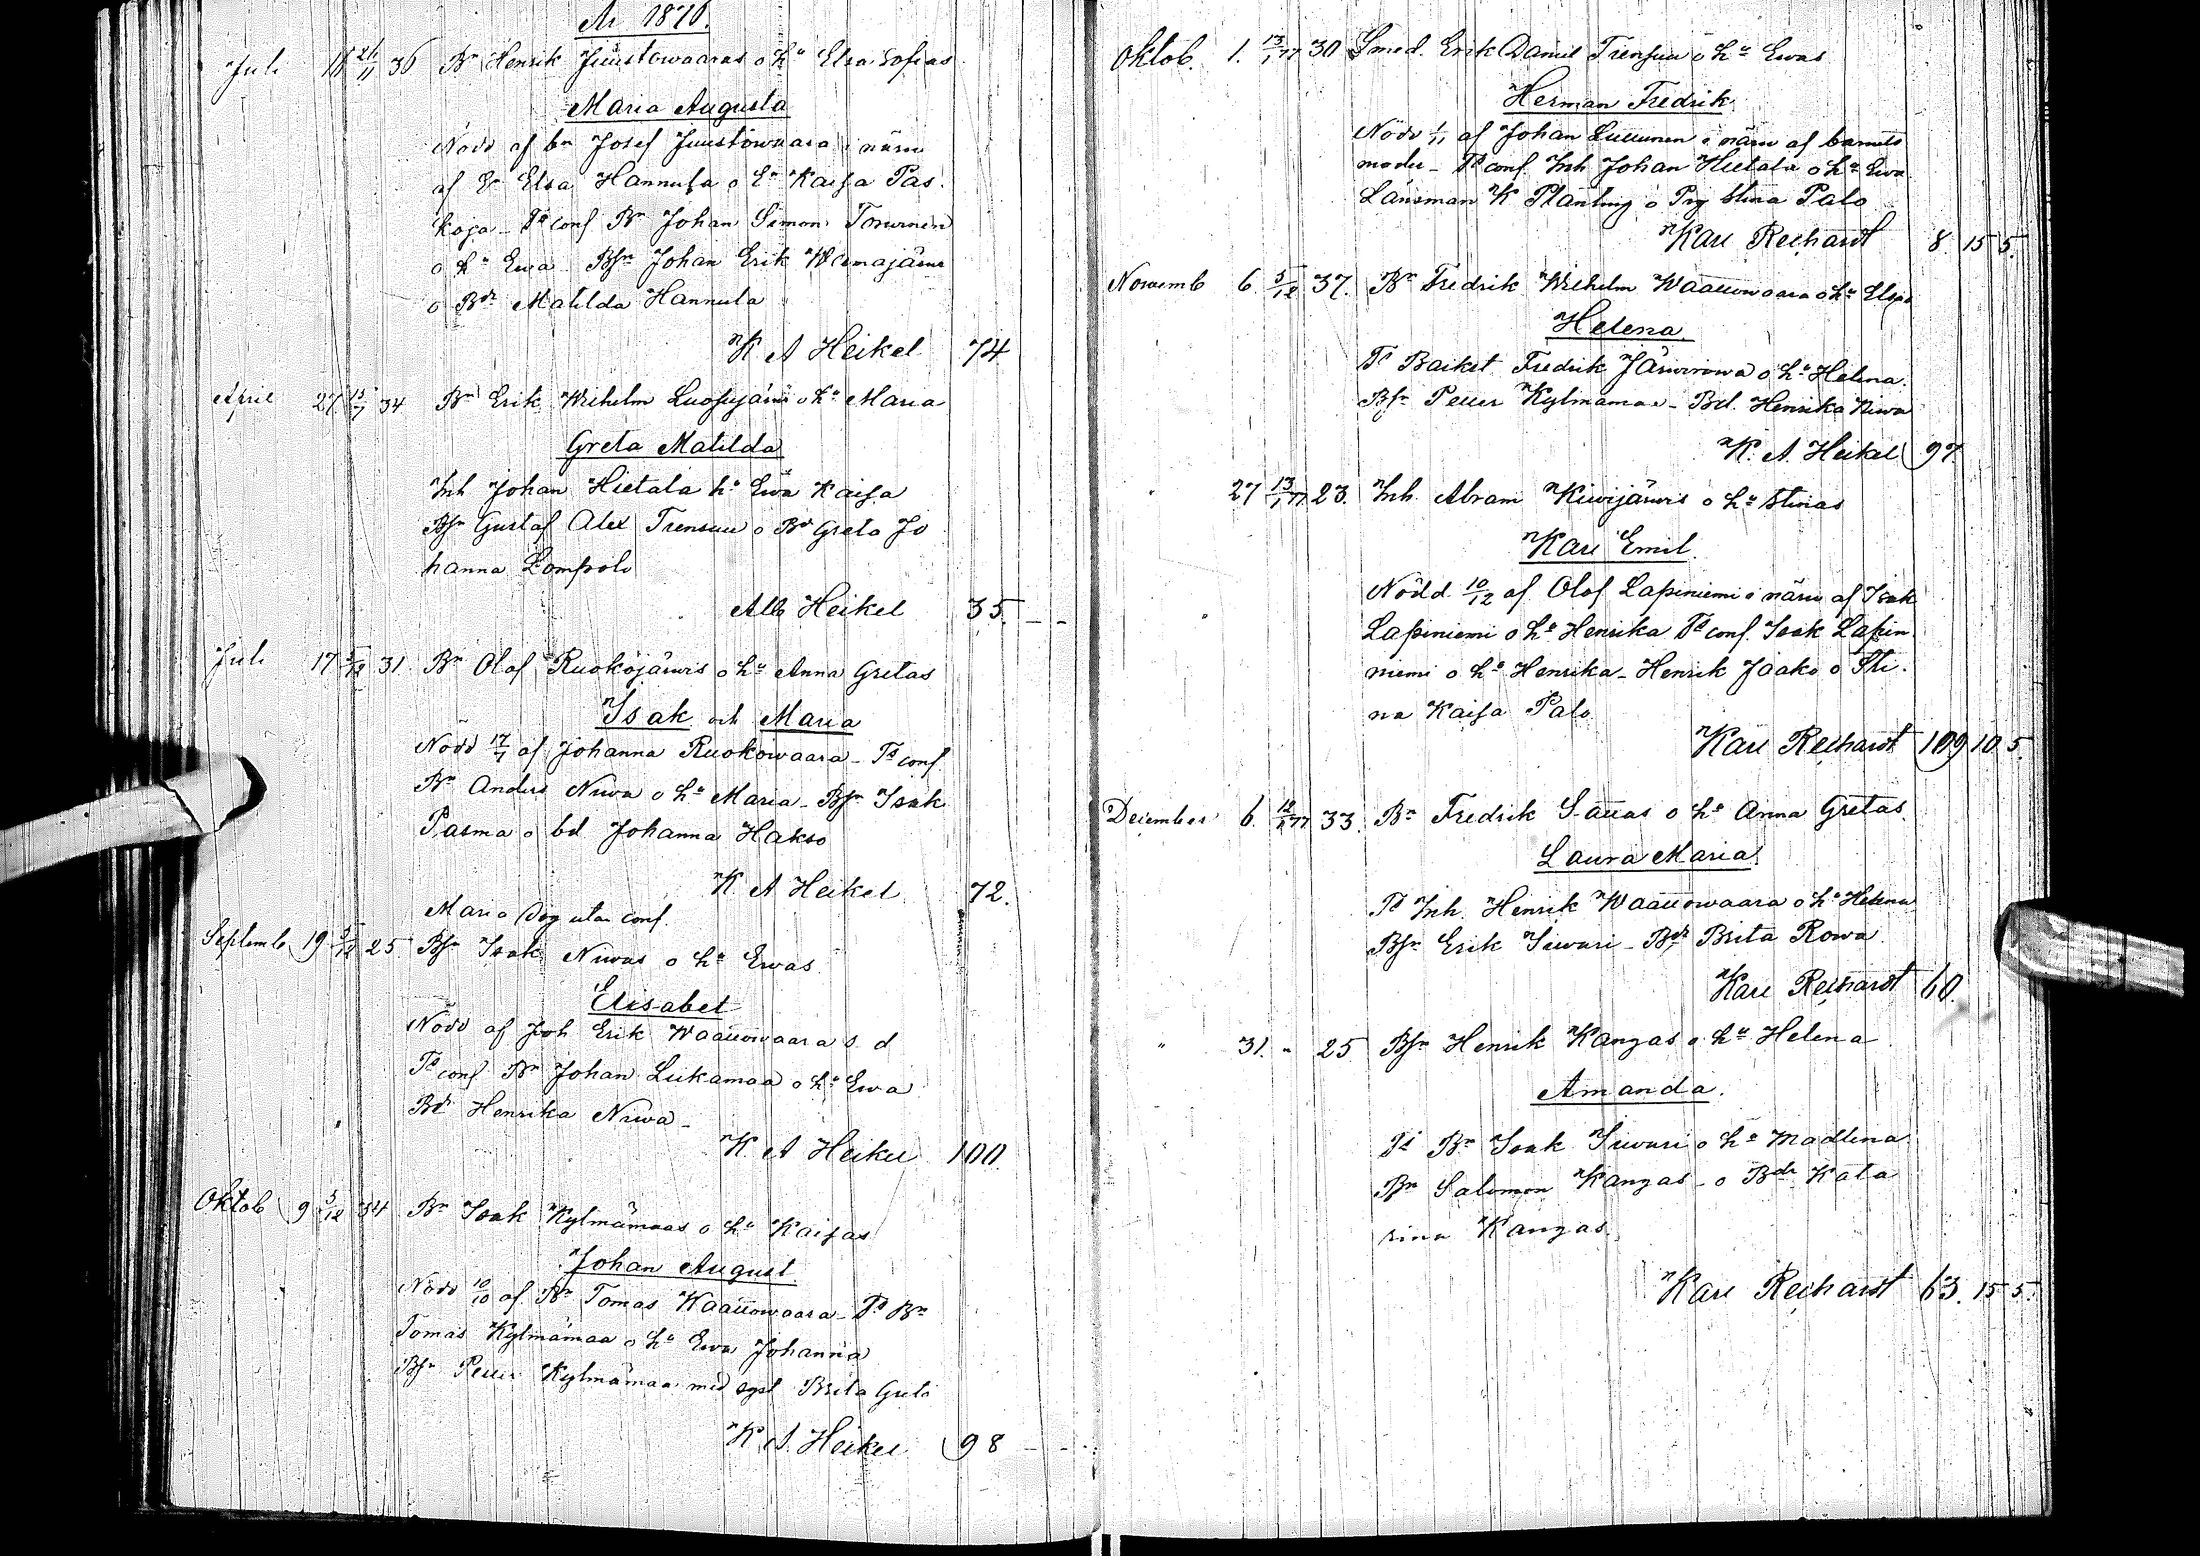 År 1876.
Juli 18 21/11 36 Bn Henrik Juustowaaras o hu Elsa Sofias
Maria Augusta
Nödd af bn Josef Juustowaara i närw
af E Elsa Hannula o En Kaisa Pas-
koja - Td conf Bn Johan Simon Torninen
o hu Ewa Bsn Johan Erik
o Bdr Matilda Hannula
K A Heikel 74
April 27 15/7 34 Bn Erik Wilhelm Luosujärwi o hu Maria
Greta Matilda
Inh Johan Hietala hu Ewa Kaisa
Bsn Gustaf Alex Trensuu o Bdr Greta Jo
hanna Lompolo
Alb Heikel 35
Juli 17 3/12 31 Bn Olof Ruokojärwis o hu Anna Gretas
Isak och Maria
Nödd 17/7 af Johanna Ruokowaara - Td conf.
Bn Anders Niwa o hu Maria - Bsn Isak
Pasma o bd Johanna Hakso
K A Heikel 72.
Maria dog utan conf.
Septemb 19 3/12 25 Bsn Isak Niwas o hu Ewas
Elisabet
Nödd af Joh Erik Waattowaara s. d
Td conf Bn Johan Liikamaa o hu Ewa
Bdr Henrika Niwa -
K A Heikel 100
Oktob 9 3/12 34 Bn Isak Kylmämaas o hu Kaisas
Johan August
Nödd 10/10 af Bn Tomas Waattowaara - Td Bn
Tomas Kylmämaa o hu Ewa Johanna
Bsn Petter Kylmämaa med syst Brita Greta
K A. Heikel 98
Oktob. 1. 13/1 77 30 Smed. Erik Daniel Trensuu o hu Ewas
Herman Fredrik
Nödd af Johan Luttunen i närw af barnets
moder - Td conf. Inh Johan Hietala o hu Ewa
Länsman K Planting o Pig Stina Palo
Karl Rechardt 8 15 5.
Novemb 6 3/12 37. Bn Fredrik Wilhelm Waattowaara o hu Elsas
Helena
Td Backst Fredrik Järwirowa o hu Helena.
Bsn Petter Kylmämaa - Bd. Henrika Niwa
K. A. Heikel 97.
27 13/1 77 23. Inh. Abram Kiwijärwis o hu Stinas
Karl Emil
Nödd 10/12 af Olof Lapiniemi i närw af Isak
Lapiniemi o hu Henrika Td conf. Isak Lapin
niemi o hu Henrika - Henrik Jaako o Sti-
na Kaisa Palo
Karl Rechardt 109 10 5.
December 6. 77 33. Bn Fredrik Sattas o hu Anna Gretas
Laura Maria
Td Inh. Henrik Waattowaara o hu Helena
Bsn Erik Siwari - Bdr Brita Rowa
Karl Rechardt 60.
" 31. " 25 Bsn Henrik Kangas o hu Helena
Amanda.
Td Bn Isak Siwari o hu Madlena
Bn Salomon Kangas - o Bdr Kata
rina Kangas.
Karl Rechardt 63. 15 5.